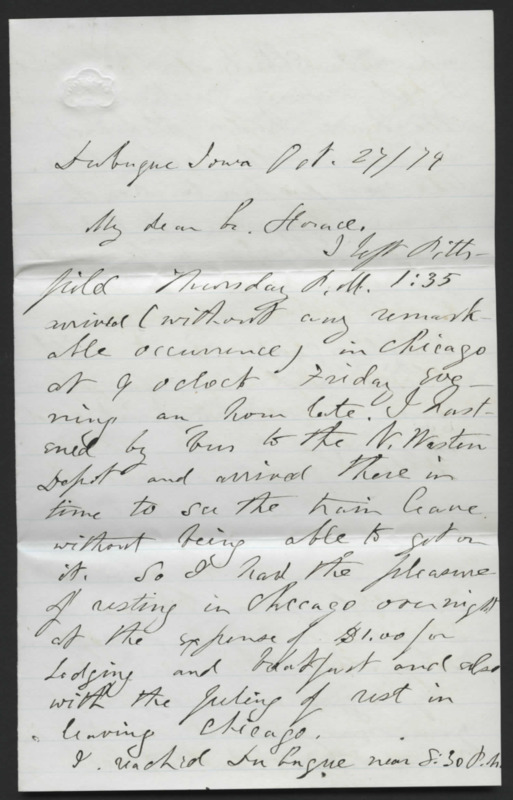 Dubuque Iowa Oct. 27/79
My dear br. Horace.
I left Pitts-
field Thursday P.M. 1:35
arrived (without any remark-
able occurrence) in Chicago
at 9 oclock Friday eve-
ning an hour late. I hast-
ened by 'bus to the N. Western
Depot and arrived there in
time to see the train leave
without being able to get on
it. So I had the pleasure
of resting in Chicago over night
at the expense of $1.00 for
Lodging and breakfast and also
with the feeling of rest in
leaving Chicago.
I reach'd Dubuque near 8:30 P.M.